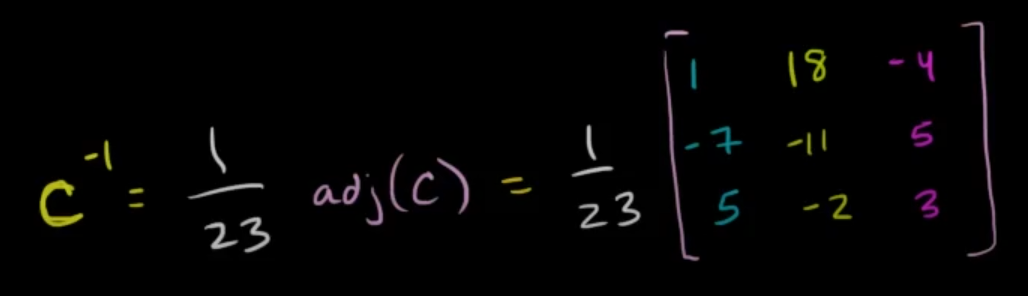 C⁻¹ = 1/23 adj(C) = 1/23 [1 18 -4
-7 -11 5
5 -2 3]